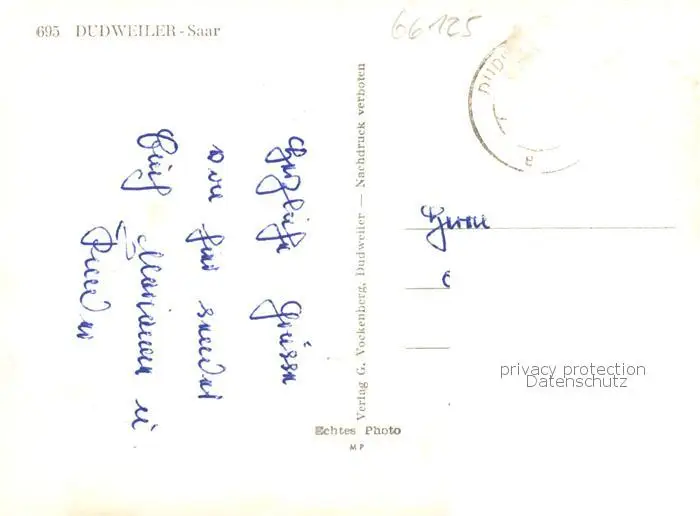 695 DUDWEILER - Saar
66125
DUD
Herrn
Verlag G. Vockenberg, Dudweiler — Nachdruck verboten
Herzliche Grüsse
von hier sendet
Euch Marianne u.
Echtes Photo
MP
privacy protection
Datenschutz